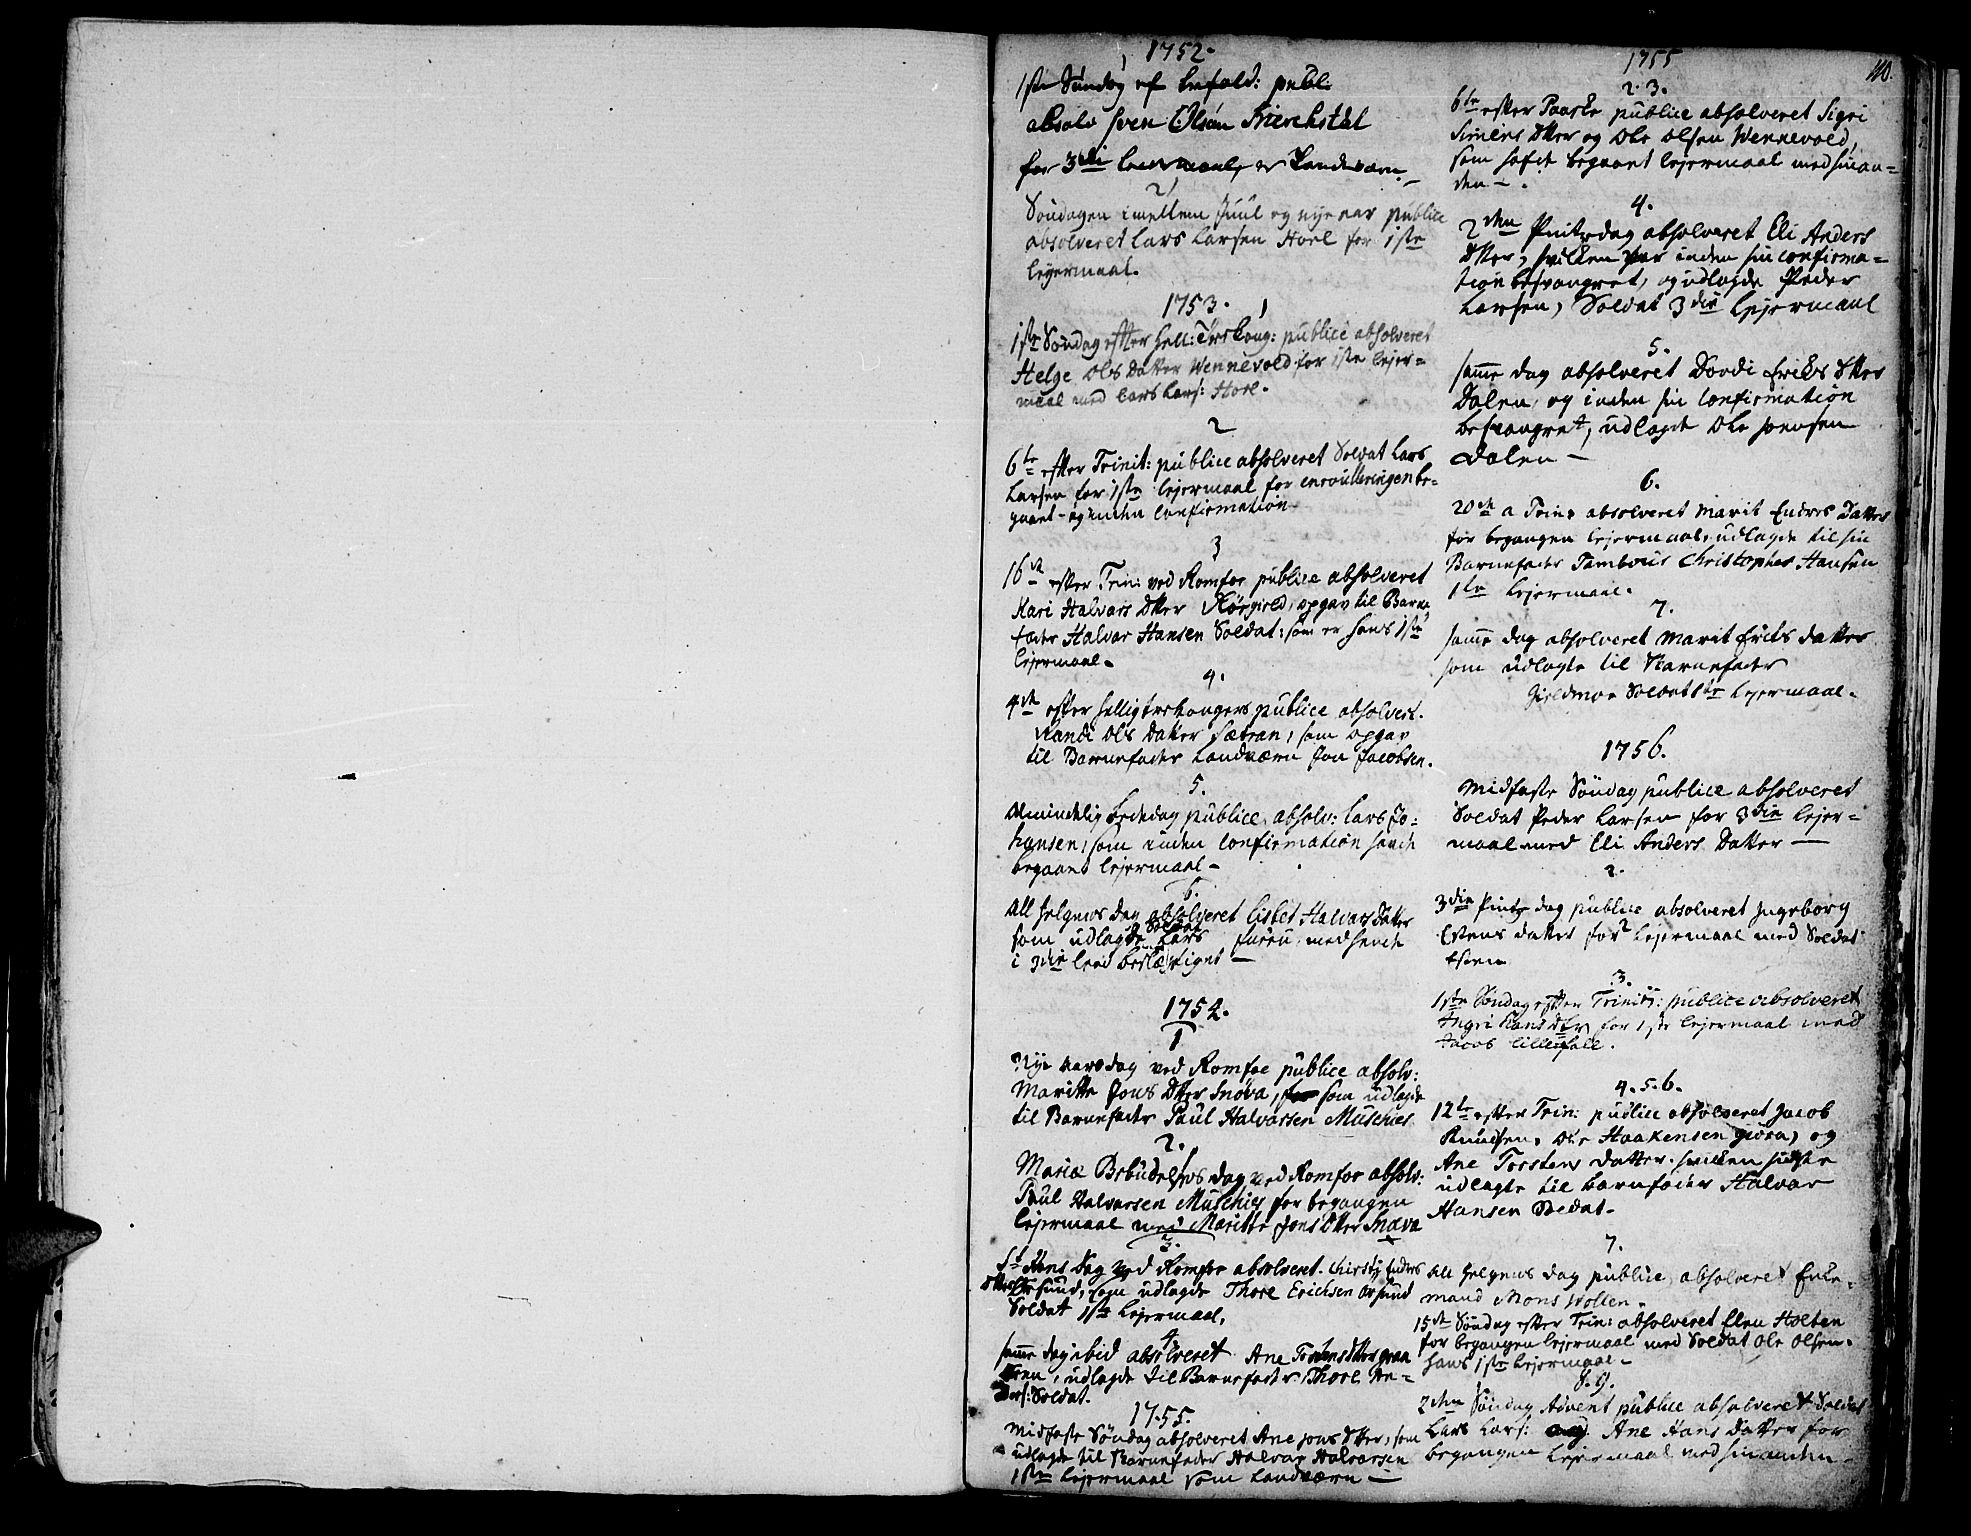 1752.
1
1ste Søndag ef
publ:
absolv Sven Olsøn
for 3die Leiermaal, er Landværn.
2
Søndagen imellem Juul og nyeaar publice
absolveret Lars Larsen Hoel for 1ste
lejermaal.
1753.
1
1ste Søndag efter Hell: Tre Kong: publice absolveret
Helge Ols Datter Wennevold for 1ste lejer=
maal med Lars Lars: Hoel.
2
6te efter Trinit: publice absolveret Soldat Lars
Larsen for 1ste lejermaal for enroulleringen be=
gaaet - og inden Confirmation
3
16de efter Trin: ved Romfoe publice absolveret
Kari Halvars Dtter opgav til Barne
fader Halvor Hansen Soldat: som er hans 1ste
lejermaal.
4.
4de efter helligtrekongers publice absolvert.
Randi Ols Datter Sætran, som opgav
til Barnefader Landværn Jon Jacobsen.
5.
Almindelig Bededag publice absolv: Lars Jo=
hansen, som inden Confirmation havde
begaaet lejermaal -
6.
All Helgens Dag absolveret Lisbet Halvars Datter
som udlagde Soldat Lars Furru, med hende
i 3die Leed beslægtiget -
1754.
1
Nye aarsdag ved Romfoe publice absolv:
Maritte Jons Dtter Snøva, som udlagde
til Barnefader Paul Halvorsen Muschies
2.
Mariæ Bebudelses dag ved Romfoe absolv:
Paul Halvorsen Muschies for begangen
lejermaal med Maritte Jons Dtter Snøva
3.
St Hans Dag ved Romfoe absolveret. Kirsty Enders
Dtter som udlagde Thore Erichsen
Soldat 1ste Lejermaal,
4.
samme dag ibid absolveret Ane Torstens Dtter
udlagde til Barnefader Thore An=
ders: Soldat.
1755.
Midfaste Søndag absolveret Ane Jons Dtter, som
udlagde til Barnefader Halvor Halvorsen
1ste Lejermaal som Landværn -
110.
1755
2. 3.
6te efter Paaske publice absolveret Sigri
Simens Dtter og Ole Olsen Wennevold,
som hafde begaaet lejermaal med hinan=
den - .
4.
2den Pintzedag absolveret Eli Anders
Dtter, hvilken var inden sin confirma=
tion besvangret, og udlagde Peder
Larsen, Soldat 3die Lejermaal
5.
samme dag absolveret Dordi Eriks Dtter
Dalen, og inden sin Confirmation
besvangret, udlagde Ole Jensen
Dalen -
6.
20de a Trin: absolveret Marit Endres Datter
for begangen lejermaal, udlagde til sin
Barnefader Tambour Christopher Hansen
1ste lejermaal.
7.
samme dag absolveret Marit Erics Datter
som udlagte til Barnefader
Soldat 1ste Lejermaal.
1756.
Midfaste Søndag publice absolveret
Soldat Peder Larsen for 3die lejer=
maal med Eli Anders Datter -
2.
3die Pintzedag publice absolveret Ingeborg
Estens Datter for lejermaal med Soldat
3.
1ste Søndag efter Trinit: publice absolveret
Ingri Hans Dtr for 1ste lejermaal med
Jacob
4. 5. 6.
12te efter Trin: publice absolveret Jacob
Knudsen, Ole Haakensen Giøra, og
Ane Torstens Datter, hvilken sidste
udlagte til barnfader Halvor
Hansen Soldat.
7.
All Helgens dag publice absolveret Enke=
mand Mons Wollen.
15de Søndag efter Trin: absolveret Elen Holten
for begangen lejermaal med Soldat Ole Olsen.
hans 1ste lejermaal -
8. 9.
2den Søndag Advent publice absolveret Soldat
Lars Lars: og Ane Hans Datter for
begangen Lejermaal med hinanden -